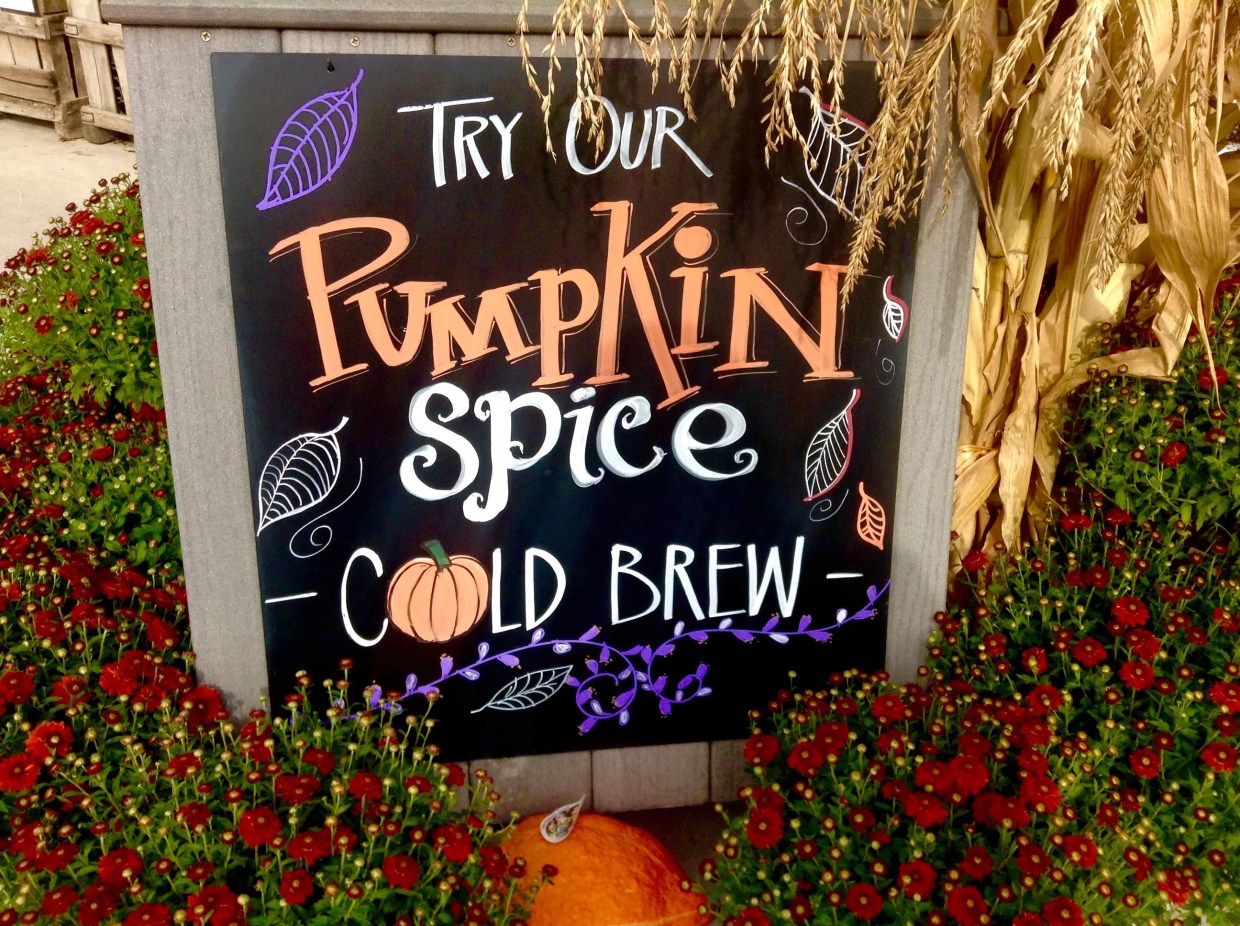 TRY OUR
PUMPKIN
Spice
- COLD BREW -